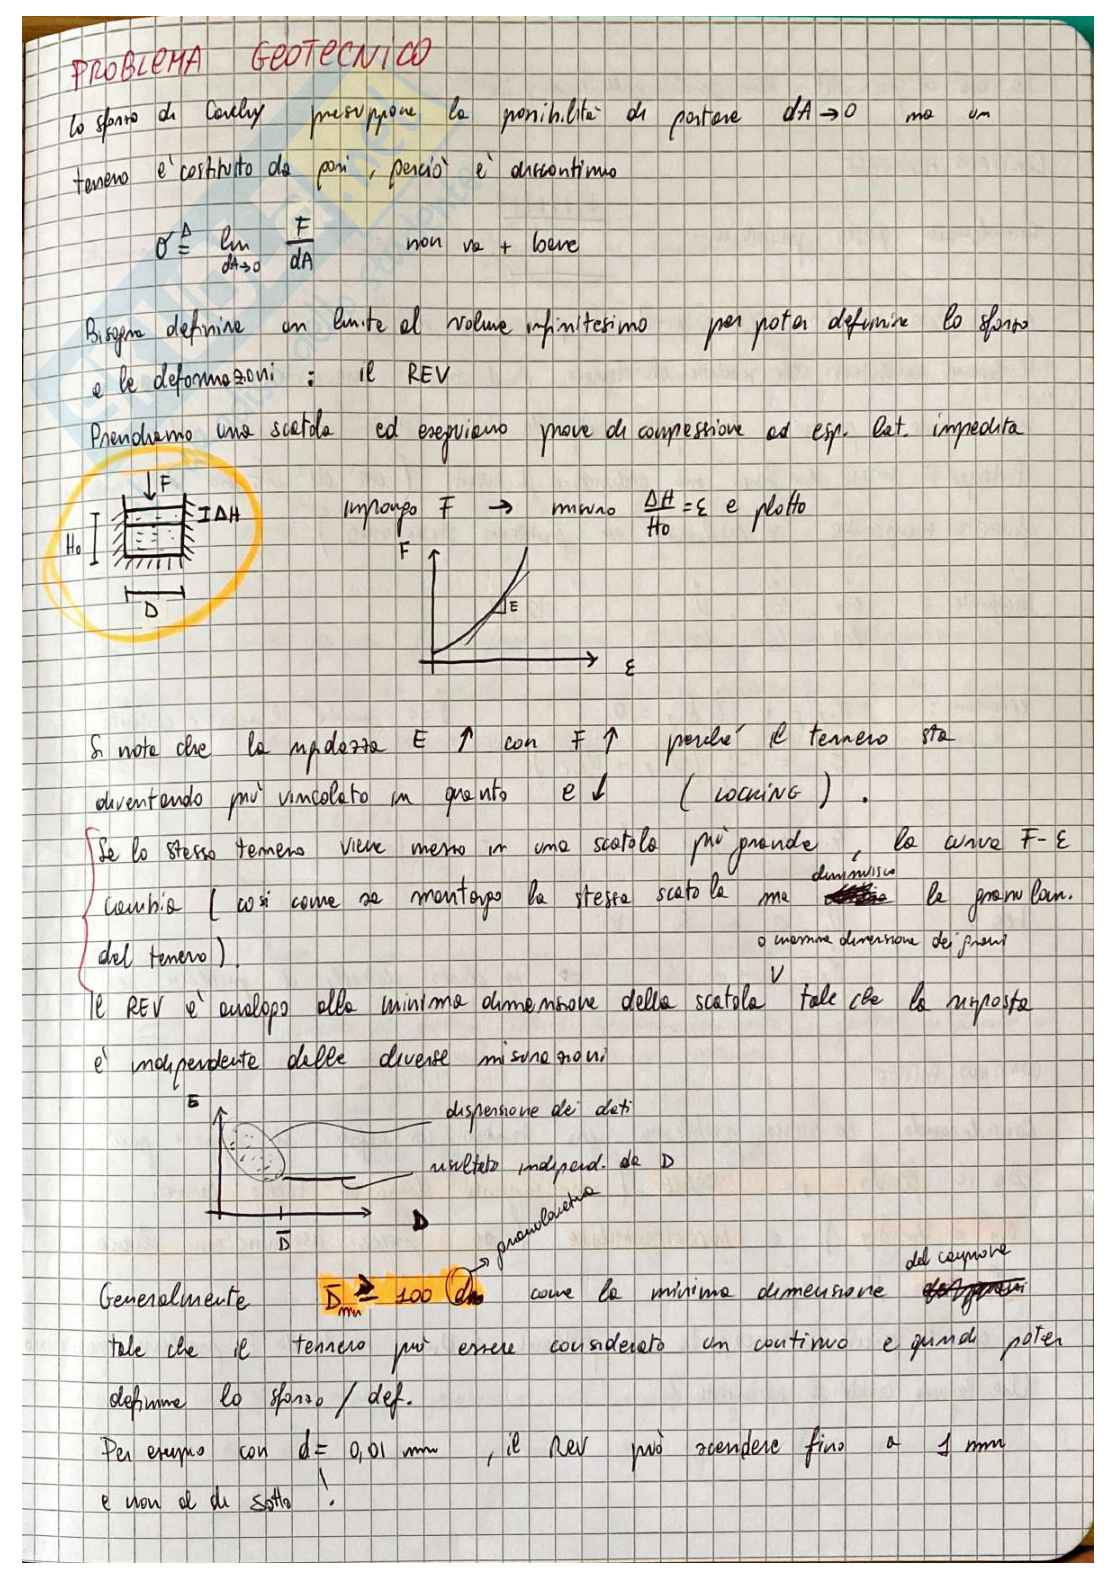 PROBLEMA GEOTECNICO
lo sforzo di Cauchy presuppone la possibilità di portare dA → 0 ma un
terreno è costituito da pori, perciò è discontinuo
σ ≜ lim dA→0 F/dA non va + bene
Bisogna definire un limite al volume infinitesimo per poter definire lo sforzo
e le deformazioni : il REV
Prendiamo una scatola ed eseguiamo prove di compressione ad esp. lat. impedita
F
ΔH
H₀
D
impongo F → misuro ΔH/H₀ = ε e plotto
F
E
ε
Si nota che la rigidezza E ↑ con F ↑ perché il terreno sta
diventando più vincolato in quanto e ↓ (LOCKING).
Se lo stesso terreno viene messo in una scatola più grande, la curva F-ε
cambia (così come se mantengo la stessa scatola ma diminuisco la granulom.
del terreno).
o massima dimensione dei grani
Il REV è analogo alla minima dimensione della scatola tale che la risposta
è indipendente dalle diverse misurazioni
E
dispersione dei dati
risultato independ. da D
D
D̄
granulometria
del campione
Generalmente D̄min ≥ 100 d come la minima dimensione
tale che il terreno può essere considerato un continuo e quindi poter
definire lo sforzo / def.
Per esempio con d = 0,01 mm, il REV può scendere fino a 1 mm
e non al di sotto !